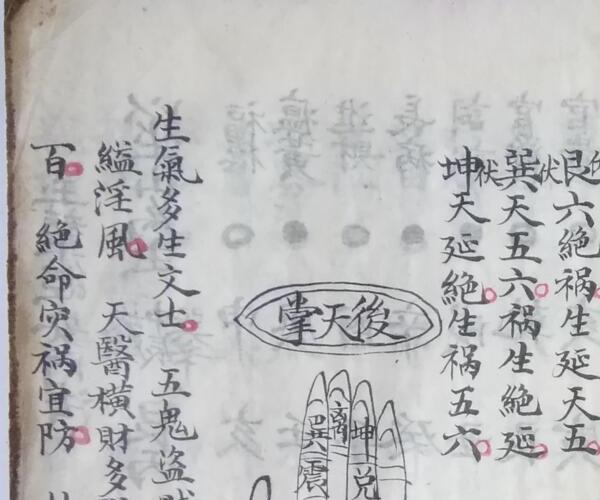 艮六絶祸生延天五
伏
巽天五六祸生絶延
伏
坤天延絶生祸五六
掌天後
離
巽
坤
震
兑
生氣多生文士 五鬼盗
縊淫風 天醫横財多
百 絕命灾祸宜防